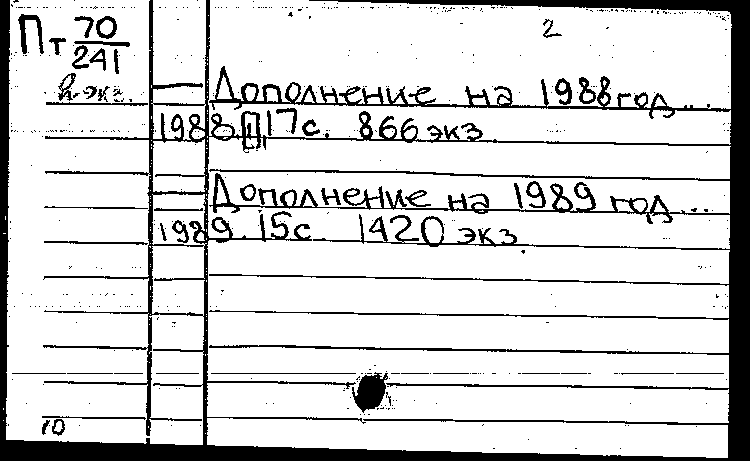 2
Пт 70/241
в. экз.
— Дополнение на 1988 год...
1988. 17с. 866 экз
— Дополнение на 1989 год...
1989. 15с 1420 экз.
10